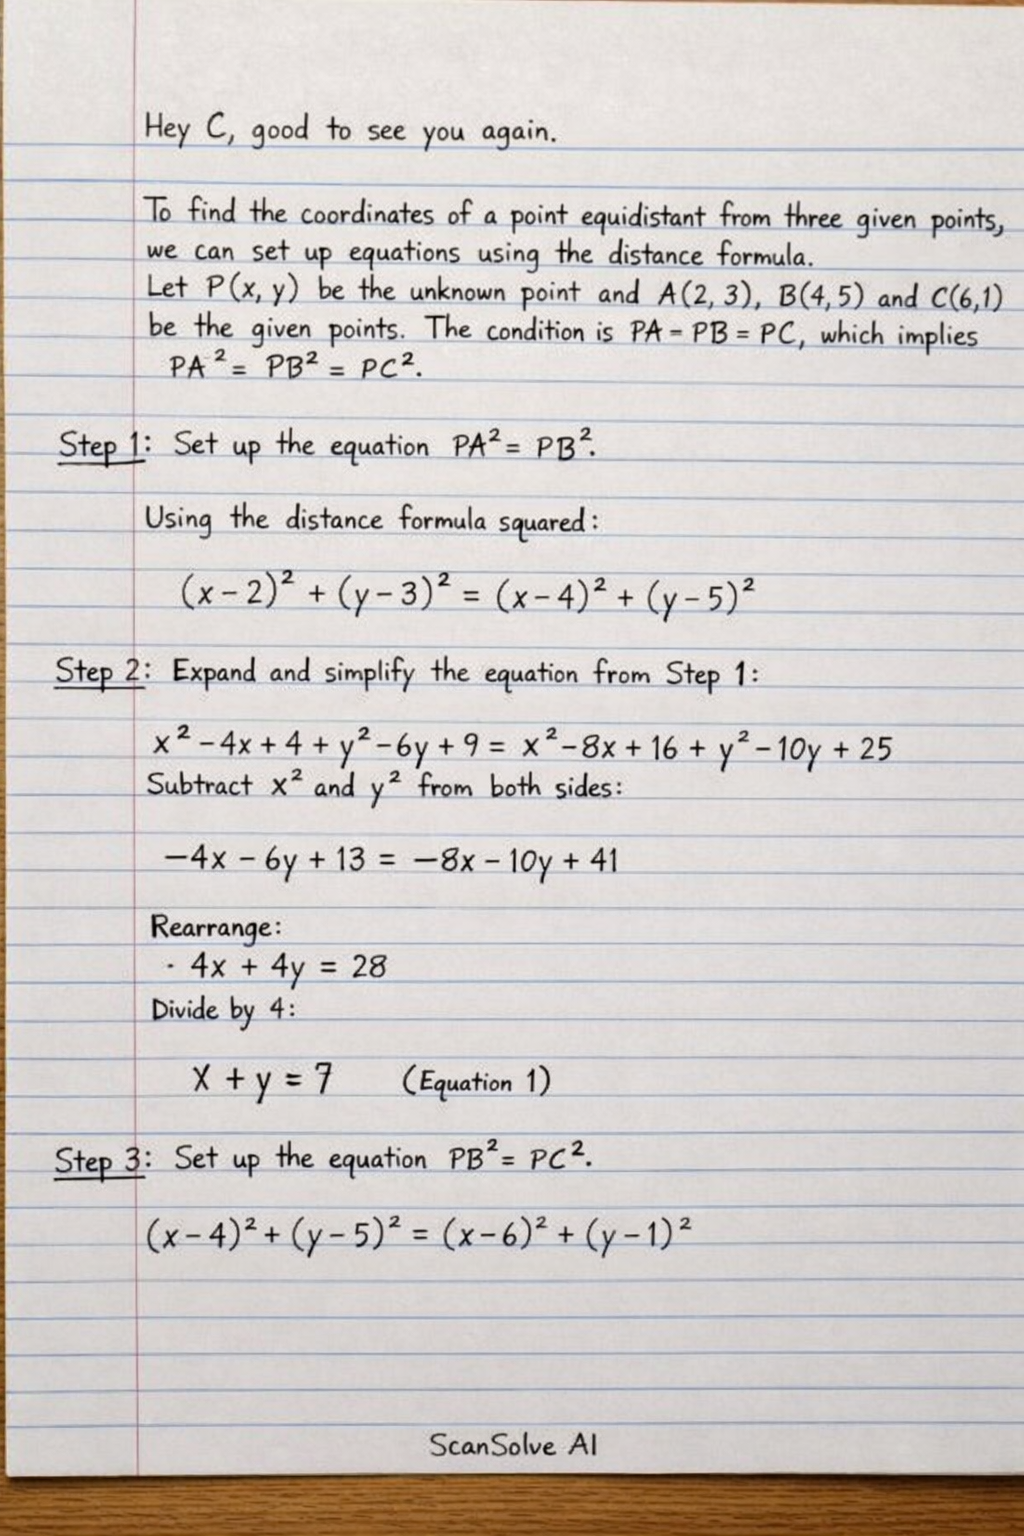 Hey C, good to see you again.
To find the coordinates of a point equidistant from three given points,
we can set up equations using the distance formula.
Let P(x, y) be the unknown point and A(2, 3), B(4, 5) and C(6,1)
be the given points. The condition is PA = PB = PC, which implies
PA² = PB² = PC².
Step 1: Set up the equation PA² = PB².
Using the distance formula squared:
(x - 2)² + (y - 3)² = (x - 4)² + (y - 5)²
Step 2: Expand and simplify the equation from Step 1:
x² - 4x + 4 + y² - 6y + 9 = x² - 8x + 16 + y² - 10y + 25
Subtract x² and y² from both sides:
-4x - 6y + 13 = -8x - 10y + 41
Rearrange:
· 4x + 4y = 28
Divide by 4:
x + y = 7 (Equation 1)
Step 3: Set up the equation PB² = PC².
(x - 4)² + (y - 5)² = (x - 6)² + (y - 1)²
ScanSolve AI